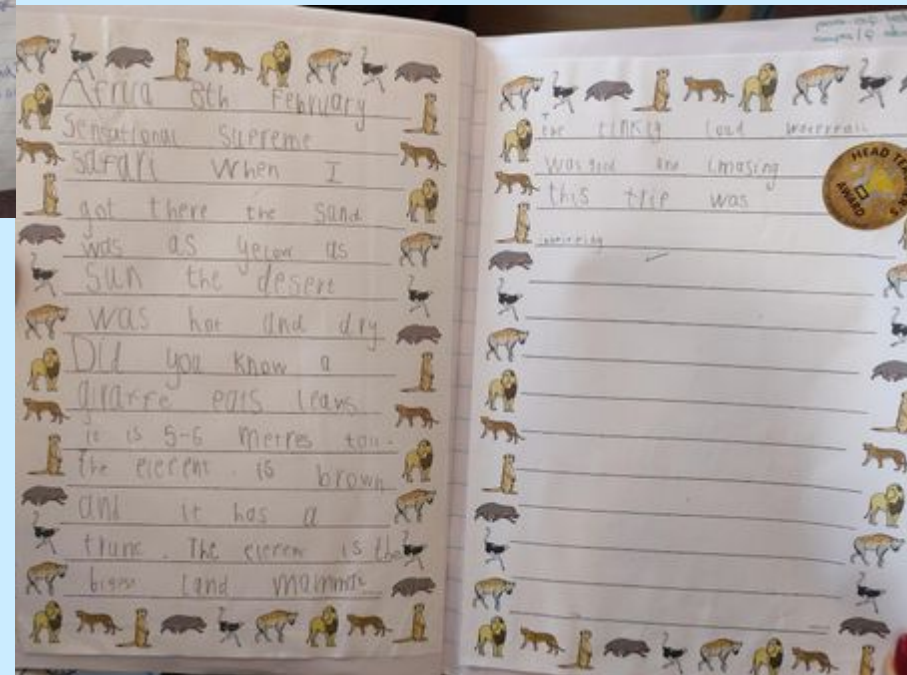 Africa 8th February
Sensational Supreme
safari When I
got there the sand
was as yelow as
sun the desert
was hot and dry
Did you know a
giraffe eats leavs
it is 5-6 metres tall.
the elefent is brown
and it has a
trunc. The elefent is the
bigest land mammal
the tinkly load waterfall
was good and imasing
this trip was
HEAD TEACHER'S
AWARD